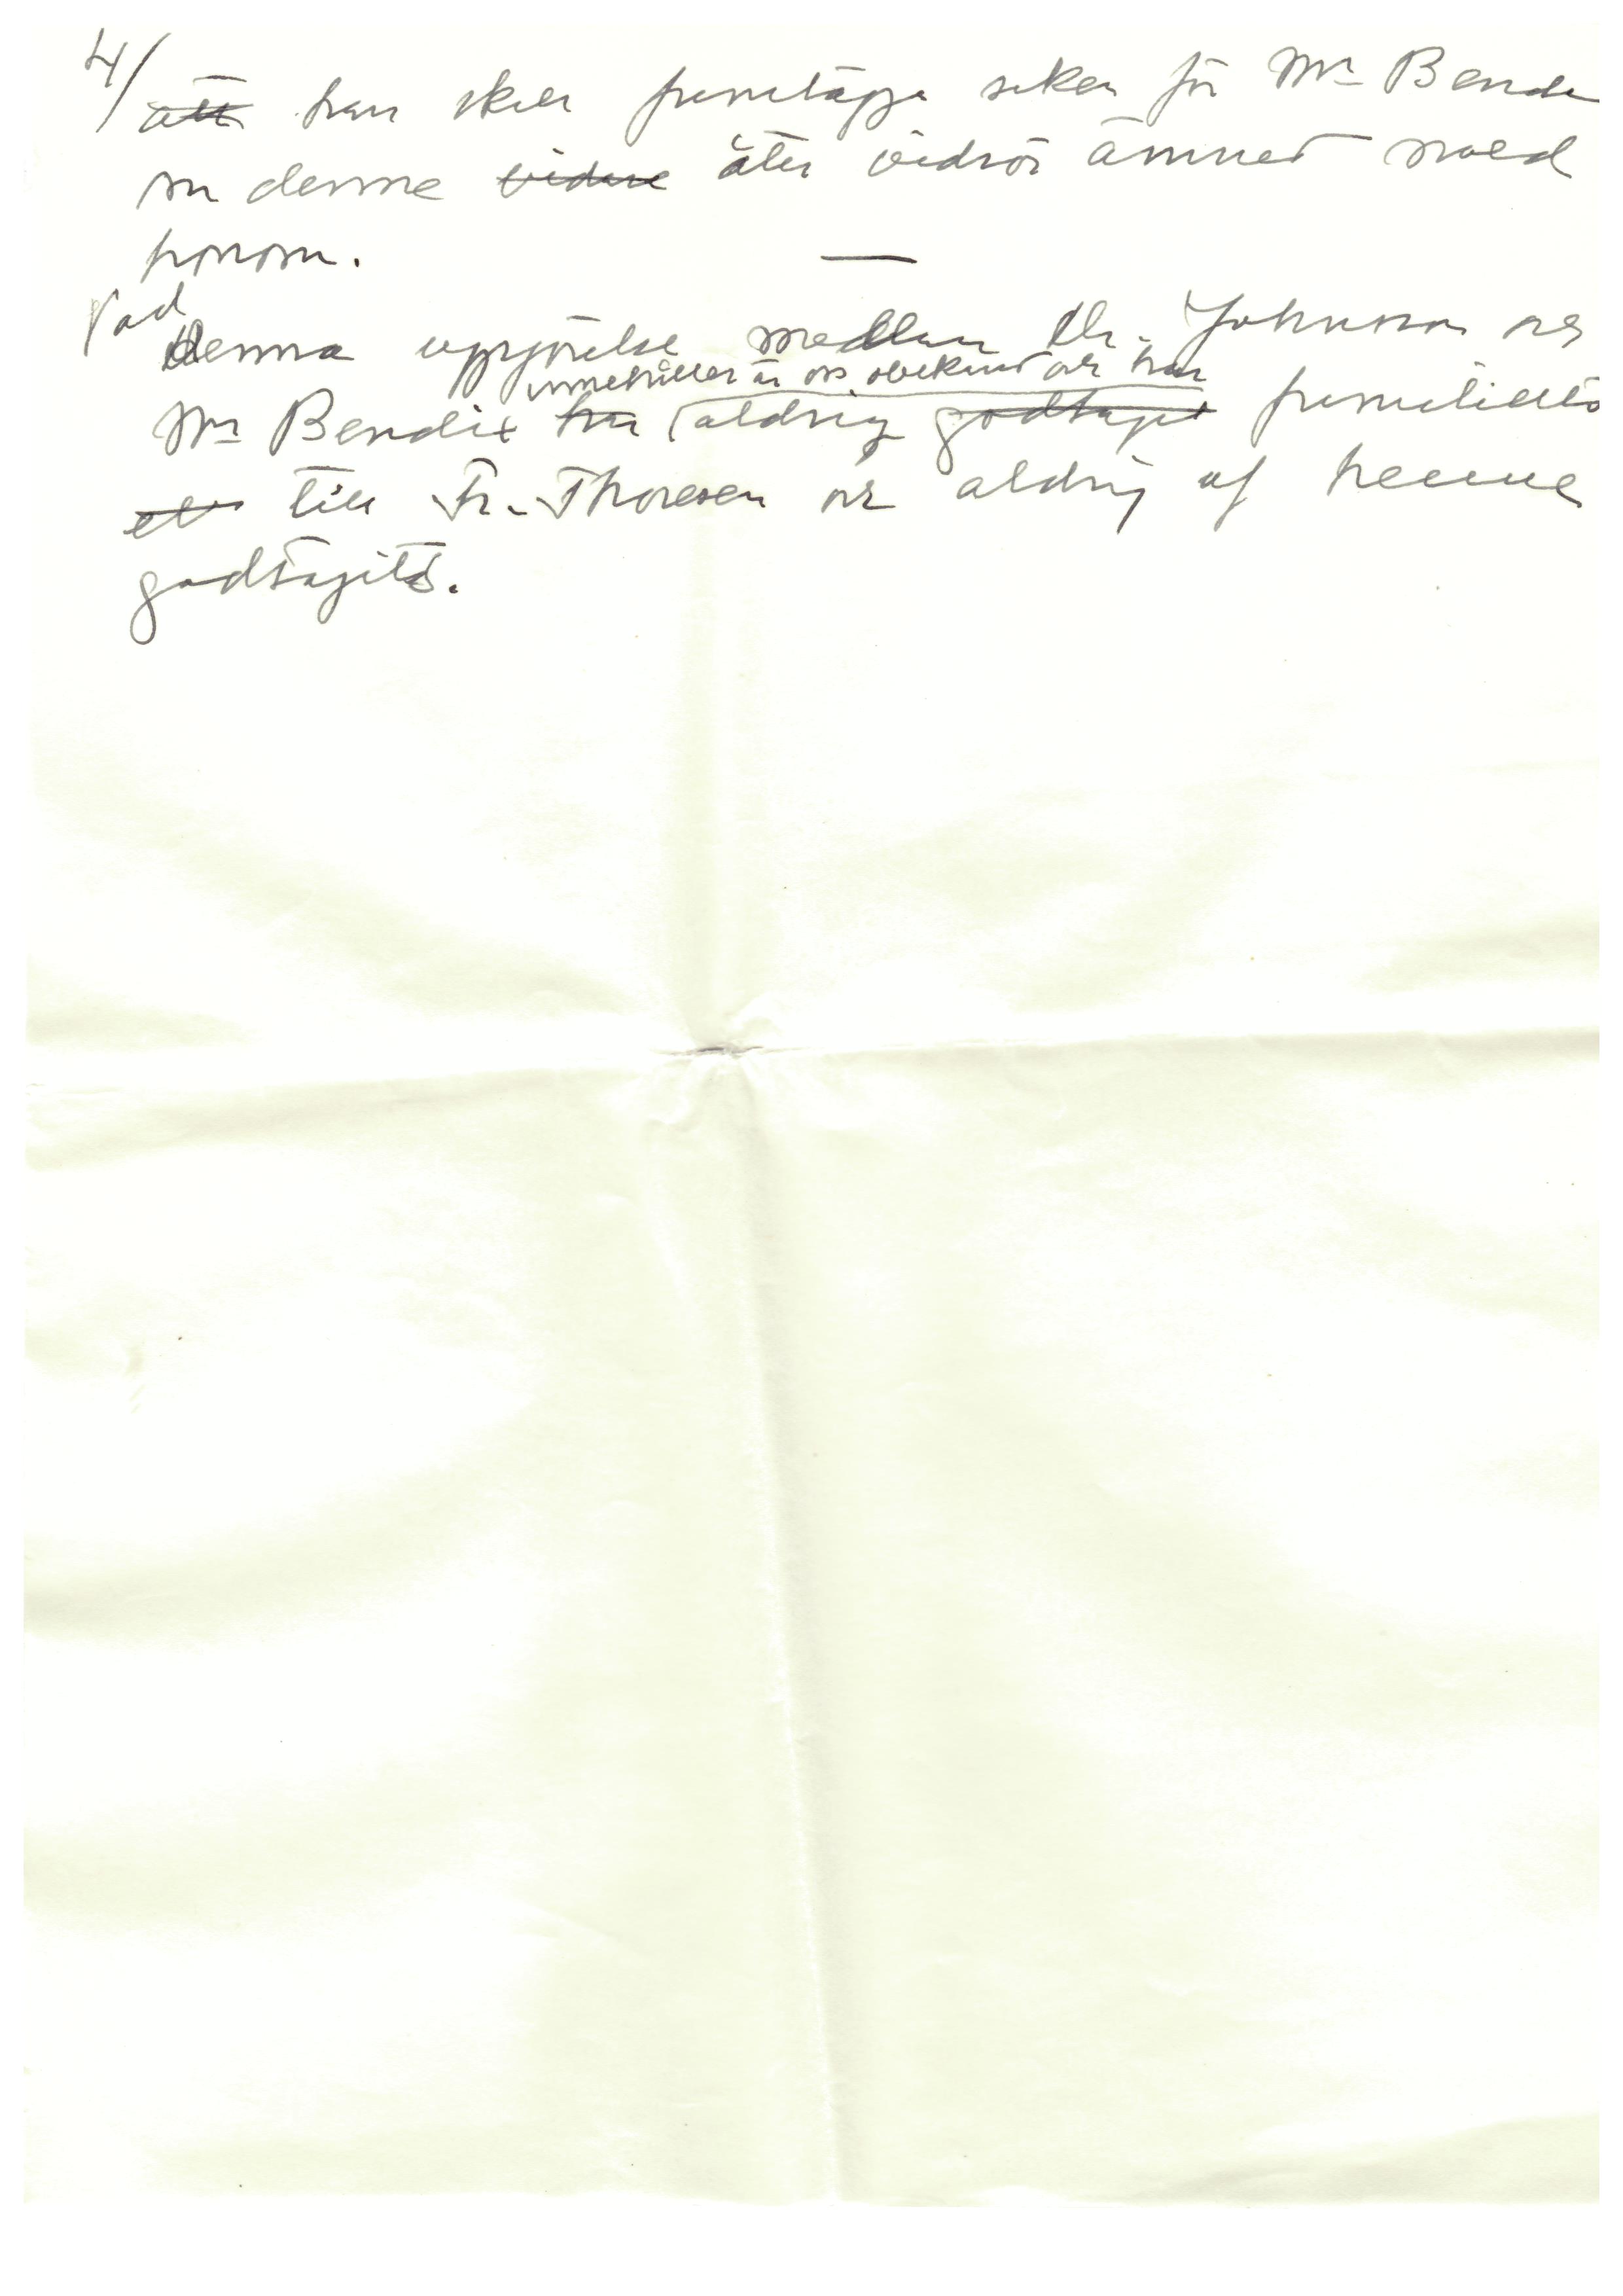 4/
att han skall framlägga saken för Mr Bendix
om denne vidare åter vidrör ämnet med
honom.
—
Vad
denna uppgörelse mellan Dr. Johnson och
innehåller är oss obekant och har
Mr Bendix har aldrig godtagit framställts
till Fr. Thoresen och aldrig af henne
godtagits.